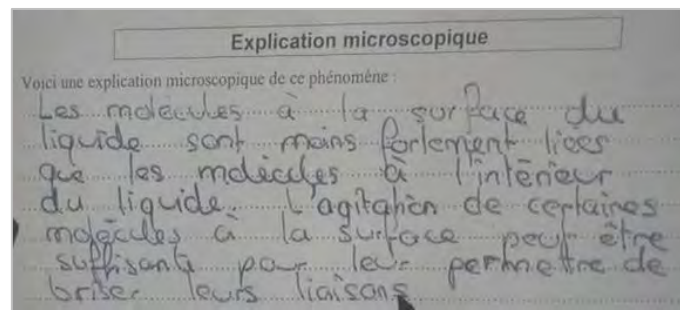 Explication microscopique
Voici une explication microscopique de ce phénomène :
Les molécules à la surface du
liquide sont moins fortement liées
que les molécules à l'intérieur
du liquide. L'agitation de certaines
molécules à la surface peut être
suffisante pour leur permettre de
briser leurs liaisons